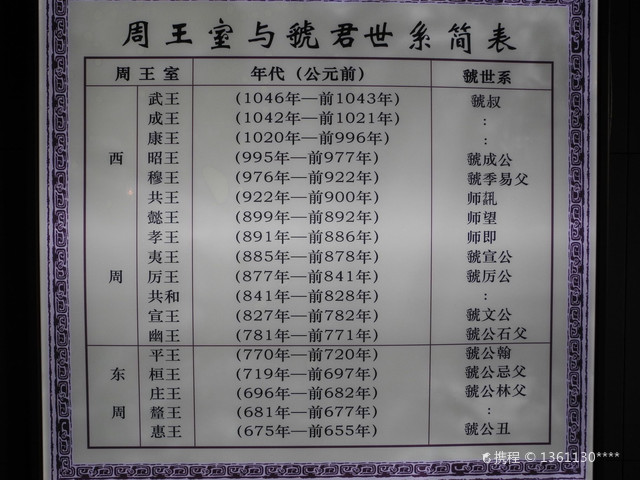 周王室与虢君世系简表
周王室 年代（公元前） 虢世系
武王 （1046年—前1043年） 虢叔
成王 （1042年—前1021年） :
康王 （1020年—前996年） :
西 昭王 （995年—前977年） 虢成公
穆王 （976年—前922年） 虢季易父
共王 （922年—前900年） 师
懿王 （899年—前892年） 师望
孝王 （891年—前886年） 师即
夷王 （885年—前878年） 虢宣公
周 厉王 （877年—前841年） 虢厉公
共和 （841年—前828年） :
宣王 （827年—前782年） 虢文公
幽王 （781年—前771年） 虢公石父
平王 （770年—前720年） 虢公翰
东 桓王 （719年—前697年） 虢公忌父
庄王 （696年—前682年） 虢公林父
周 釐王 （681年—前677年） :
惠王 （675年—前655年） 虢公丑
携程 © 1361130****